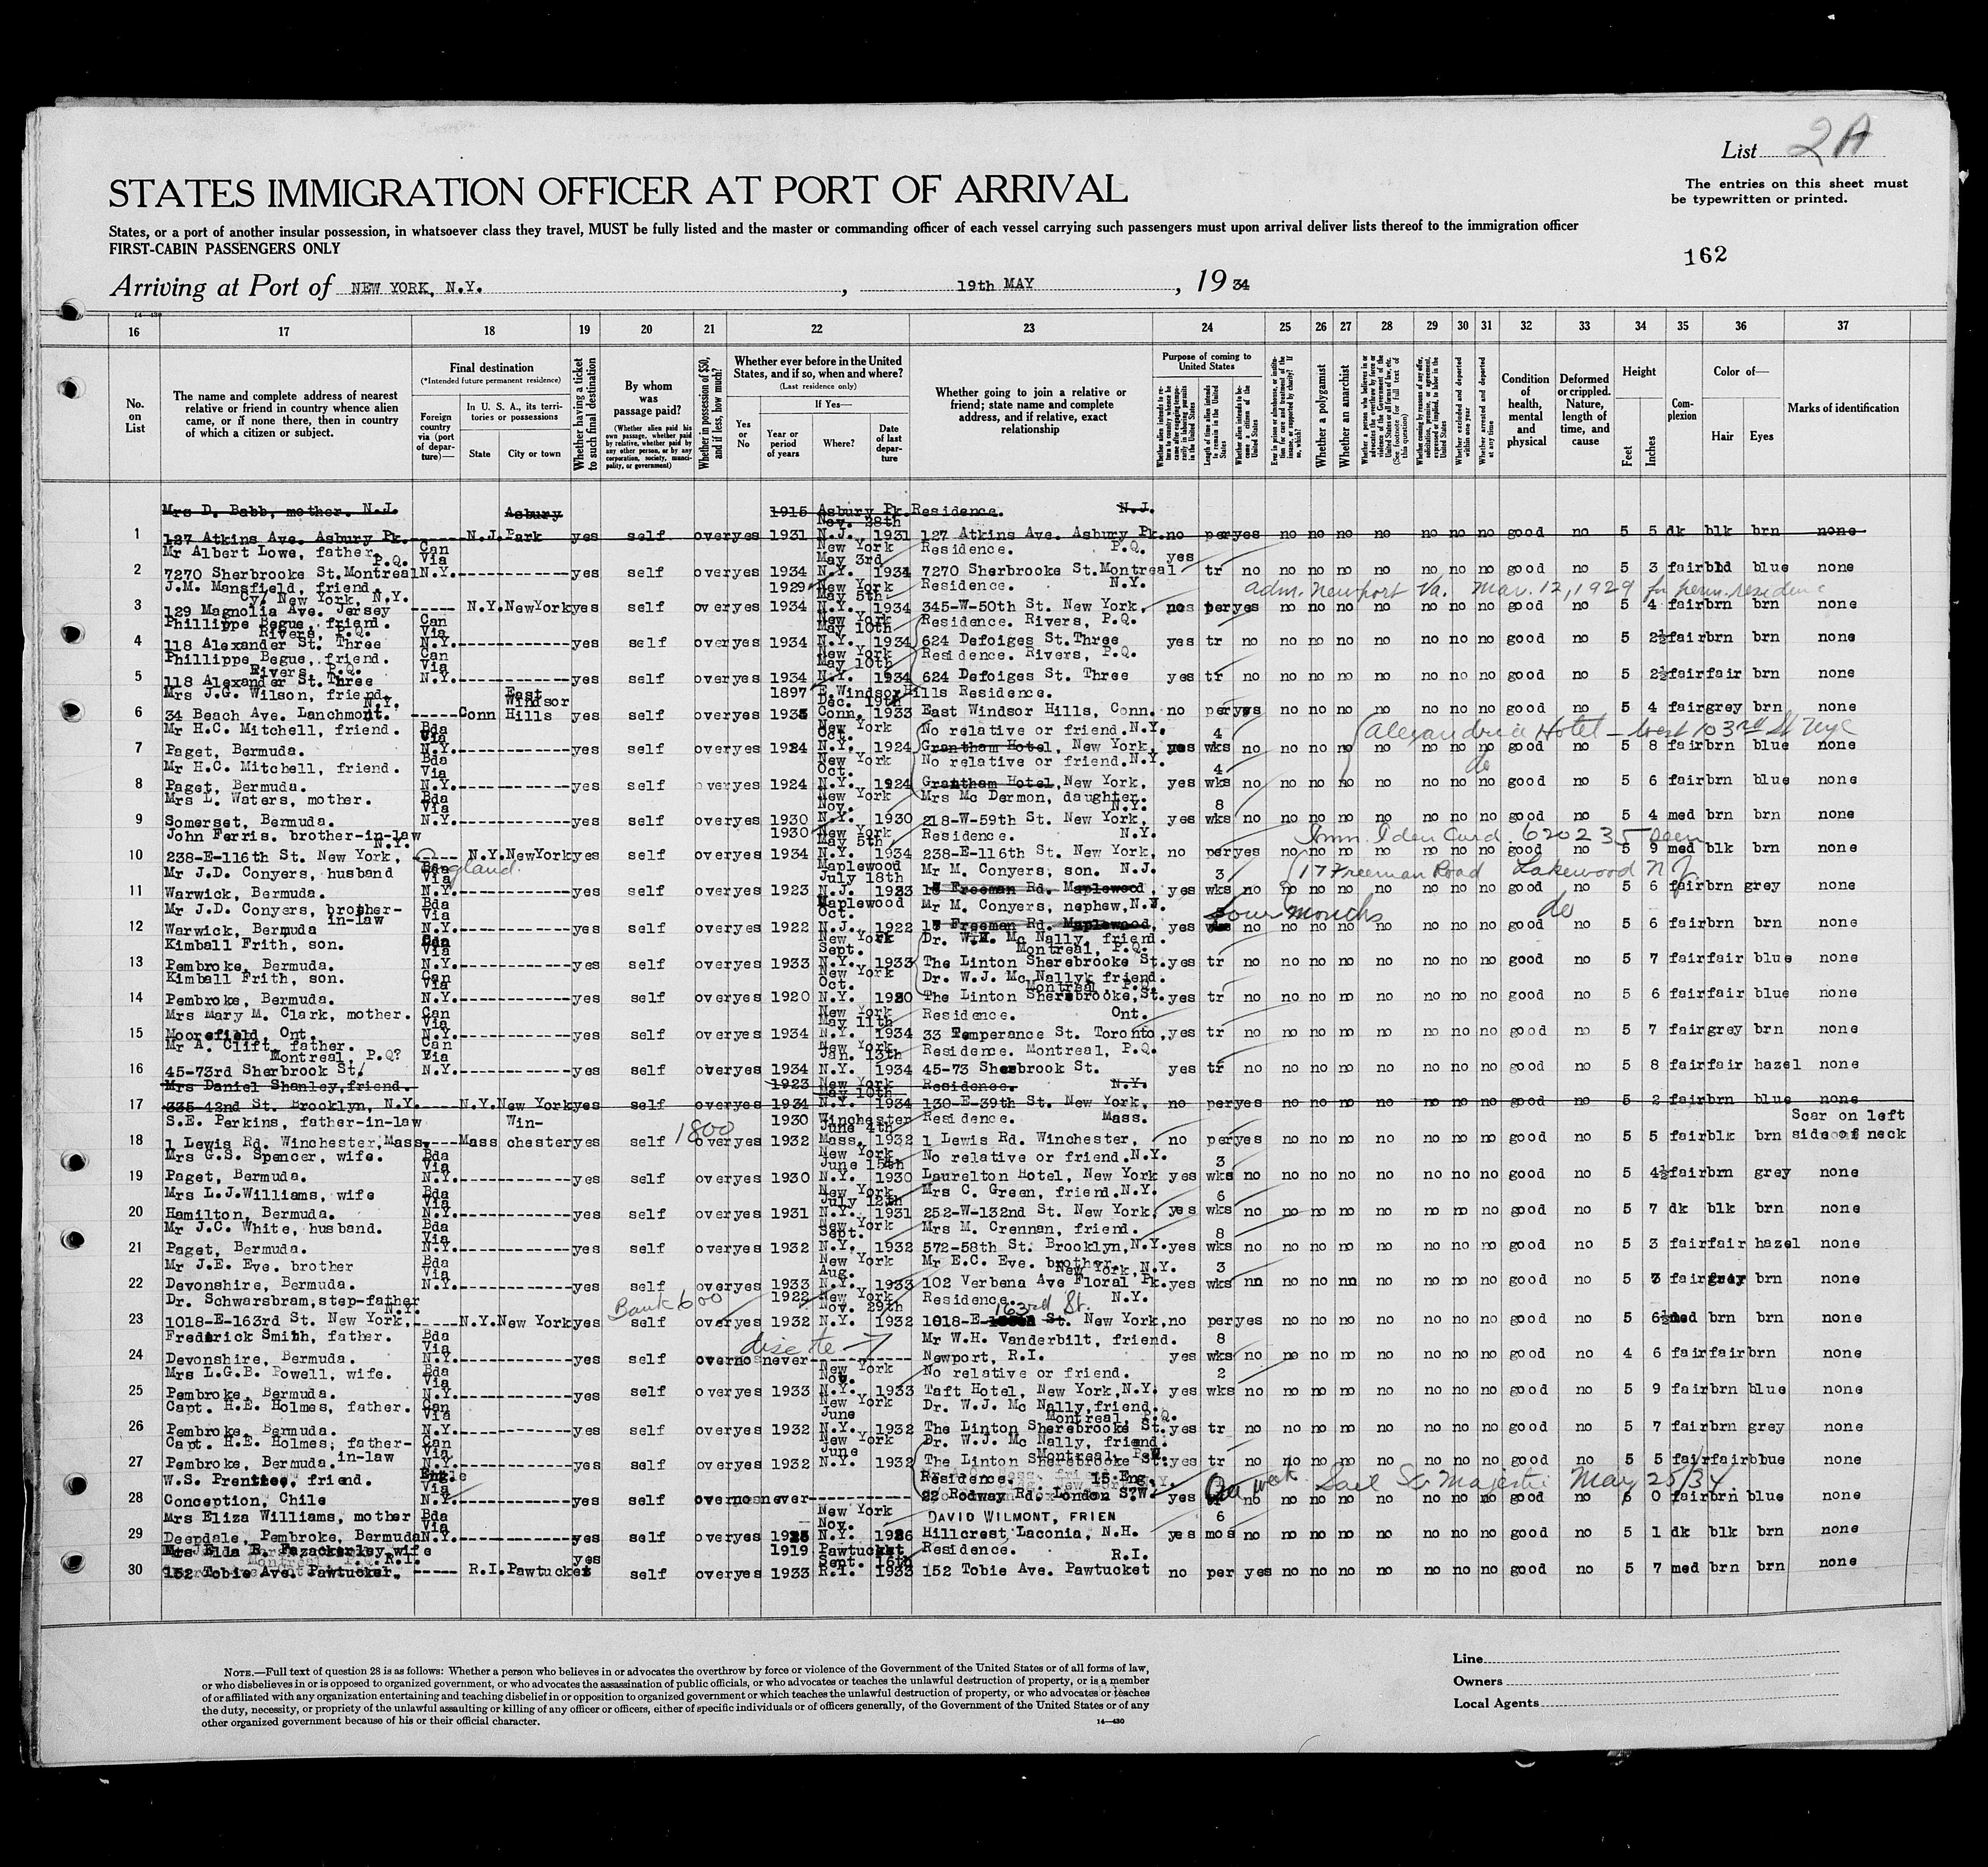 List 2A
STATES IMMIGRATION OFFICER AT PORT OF ARRIVAL
The entries on this sheet must
be typewritten or printed.
States, or a port of another insular possession, in whatsoever class they travel, MUST be fully listed and the master or commanding officer of each vessel carrying such passengers must upon arrival deliver lists thereof to the immigration officer
FIRST-CABIN PASSENGERS ONLY
162
Arriving at Port of NEW YORK, N.Y. , 19th MAY , 19 34
16 17 18 19 20 21 22 23 24 25 26 27 28 29 30 31 32 33 34 35 36 37
No. on List
The name and complete address of nearest relative or friend in country whence alien came, or if none there, then in country of which a citizen or subject.
Final destination
(*Intended future permanent residence)
Foreign country via (port of departure)—
In U. S. A., its territories or possessions
State City or town
Whether having a ticket to such final destination
By whom was passage paid?
(Whether alien paid his own passage, whether paid by relative, whether paid by any other person, or by any corporation, society, municipality, or government)
Whether in possession of $50, and if less, how much?
Whether ever before in the United States, and if so, when and where?
(Last residence only)
Yes or No
If Yes—
Year or period of years Where? Date of last departure
Whether going to join a relative or friend; state name and complete address, and if relative, exact relationship
Purpose of coming to United States
Whether a polygamist
Whether an anarchist
Condition of health, mental and physical
Deformed or crippled. Nature, length of time, and cause
Height
Feet Inches
Complexion
Color of—
Hair Eyes
Marks of identification
Mrs D. Babb, mother. N.J. Asbury 1915 Asbury Pk. Residence. N.J.
Nov. 28th
1 127 Atkins Ave. Asbury Pk. N.J. Park yes self over yes 1931 N.J. 1931 127 Atkins Ave. Asbury Pk. no per yes no no no no no no no good no 5 5 dk blk brn none
Mr Albert Lowe, father. P.Q. Can Via New York May 3rd Residence. P.Q. yes
2 7270 Sherbrooke St. Montreal N.Y. yes self over yes 1934 N.Y. 1934 7270 Sherbrooke St. Montreal tr no no no no no no no no good no 5 3 fair bld blue none
J.M. Mansfield, friend. Cy/ New York, N.Y. 1929 New York May 5th Residence. N.Y. adm. Newport Va. Mar. 12, 1929 for perm. residence
3 129 Magnolia Ave. Jersey N.Y. New York yes self over yes 1934 N.Y. 1934 345-W-50th St. New York, no per yes no no no no no no no good no 5 4 fair brn brn none
Phillippe Begue, friend. Rivers, P.Q. Can Via New York May 10th Residence. Rivers, P.Q.
4 118 Alexander St. Three N.Y. yes self over yes 1934 N.Y. 1934 624 Defoiges St. Three yes tr no no no no no no no no good no 5 2½ fair brn brn none
Phillippe Begue, friend. Rivers, P.Q. Can Via New York May 10th Residence. Rivers, P.Q.
5 118 Alexander St. Three N.Y. yes self over yes 1934 N.Y. 1934 624 Defoiges St. Three yes tr no no no no no no no no good no 5 2½ fair fair brn none
Mrs J.G. Wilson, friend. N.Y. East Windsor 1897 E. Windsor Hills Dec. 19th Residence.
6 34 Beach Ave. Lanchmont. Conn Hills yes self over yes 1933 Conn. 1933 East Windsor Hills, Conn. no per yes no no no no no no no good no 5 4 fair grey brn none
Mr H.C. Mitchell, friend. Bda Via New York Oct. No relative or friend. N.Y. 4 Alexandria Hotel — West 103rd St NYC
7 Paget, Bermuda. N.Y. yes self over yes 1924 N.Y. 1924 Grantham Hotel, New York, yes wks no no no no no no no no good no 5 8 fair brn blue none
Mr H.C. Mitchell, friend. Bda Via New York Oct. No relative or friend. N.Y. 4 do
8 Paget, Bermuda. N.Y. yes self over yes 1924 N.Y. 1924 Grantham Hotel, New York, yes wks no no no no no no no no good no 5 6 fair brn blue none
Mrs L. Waters, mother. Bda Via New York Nov. Mrs Mc Dermon, daughter. N.Y. 8
9 Somerset, Bermuda. N.Y. yes self over yes 1930 N.Y. 1930 218-W-59th St. New York, yes wks no no no no no no no no good no 5 4 med brn brn none
John Ferris. brother-in-law N.Y. 1930 New York May 5th Residence. N.Y. Imm. Iden Card. 620235 seen
10 238-E-116th St. New York, N.Y. New York yes self over yes 1934 N.Y. 1934 238-E-116th St. New York, no per yes no no no no no no no good no 5 9 med blk brn none
Mr J.D. Conyers, husband England. Via Maplewood July 18th Mr M. Conyers, son. N.J. 3 17 Freeman Road Lakewood N J.
11 Warwick, Bermuda. N.Y. yes self over yes 1923 N.J. 1923 17 Freeman Rd. Maplewood, yes wks no no no no no no no no good no 5 6 fair brn grey none
Mr J.D. Conyers, brother-in-law Bda Via Maplewood Oct. Mr M. Conyers, nephew, N.J. four months do
12 Warwick, Bermuda N.Y. yes self over yes 1922 N.J. 1922 17 Freeman Rd. Maplewood, yes wks no no no no no no no no good no 5 6 fair brn brn none
Kimball Frith, son. Can Via New York Sept. Dr. W.J. Mc Nally, friend. Montreal, P.Q.
13 Pembroke, Bermuda. N.Y. yes self over yes 1933 N.Y. 1933 The Linton Sherebrooke St. yes tr no no no no no no no no good no 5 7 fair fair blue none
Kimball Frith, son. Can Via New York Oct. Dr. W.J. Mc Nallyk friend. Montreal, P.Q.
14 Pembroke, Bermuda. N.Y. yes self over yes 1920 N.Y. 1920 The Linton Sherebrooke, St. yes tr no no no no no no no no good no 5 6 fair fair blue none
Mrs Mary M. Clark, mother. Can Via New York May 11th Residence. Ont.
15 Moorefield, Ont. N.Y. yes self over yes 1934 N.Y. 1934 33 Temperance St. Toronto, yes tr no no no no no no no no good no 5 7 fair grey brn none
Mr A. Clift, father. Montreal, P.Q? Can Via New York. Jan. 13th Residence. Montreal, P.Q.
16 45-73rd Sherbrook St. N.Y. yes self over yes 1934 N.Y. 1934 45-73 Sherbrook St. yes tr no no no no no no no no good no 5 8 fair fair hazel none
Mrs Daniel Shanley, friend. 1923 New York May 10th Residence. N.Y.
17 335-42nd St. Brooklyn, N.Y. N.Y. New York yes self over yes 1934 N.Y. 1934 130-E-39th St. New York, no per yes no no no no no no no good no 5 2 fair brn blue none
S.E. Perkins, father-in-law Win- 1930 Winchester June 4th Residence. Mass. Scar on left
18 1 Lewis Rd. Winchester, Mass. Mass chester yes self 1800 over yes 1932 Mass. 1932 1 Lewis Rd. Winchester, no per yes no no no no no no no good no 5 5 fair blk brn side of neck
Mrs G.S. Spencer, wife. Bda Via New York June 15th No relative or friend. N.Y. 3
19 Paget, Bermuda. N.Y. yes self over yes 1930 N.Y. 1930 Laurelton Hotel, New York yes wks no no no no no no no no good no 5 4½ fair brn grey none
Mrs L.J. Williams, wife Bda Via New York July 12th Mrs C. Green, friend. N.Y. 6
20 Hamilton, Bermuda. N.Y. yes self over yes 1931 N.Y. 1931 252-W-132nd St. New York, yes wks no no no no no no no no good no 5 7 dk blk brn none
Mr J.C. White, husband. Bda Via New York Sept. Mrs M. Crennan, friend. 8
21 Paget, Bermuda. N.Y. yes self over yes 1932 N.Y. 1932 572-58th St. Brooklyn, N.Y. yes wks no no no no no no no no good no 5 3 fair fair hazel none
Mr J.E. Eve. brother Bda Via New York Aug. Mr E.C. Eve. brother. New York, N.Y. 3
22 Devonshire, Bermuda. N.Y. yes self over yes 1933 N.Y. 1933 102 Verbena Ave Floral Pk. yes wks nn no no nn no no no no good no 5 3 fair grey brn none
Dr. Schwarsbram, step-father N.Y. Bank 600 1922 New York Nov. 29th Residence. 163rd St. N.Y.
23 1018-E-163rd St. New York, N.Y. New York yes self over yes 1932 N.Y. 1932 1018-E- St. New York, no per yes no no no no no no no good no 5 6½ med brn brn none
Frederick Smith, father. Bda Via Mr W.H. Vanderbilt, friend. 8
24 Devonshire, Bermuda. N.Y. yes self over no never Newport, R.I. yes wks no no no no no no no no good no 4 6 fair fair brn none
Mrs L.G.B. Powell, wife. Bda Via New York Nov. No relative or friend. 2
25 Pembroke, Bermuda. N.Y. yes self over yes 1933 N.Y. 1933 Taft Hotel, New York, N.Y. yes wks no no no no no no no no good no 5 9 fair brn blue none
Capt. H.E. Holmes, father. Can Via New York June Dr. W.J. Mc Nally, friend. Montreal, P.Q.
26 Pembroke, Bermuda. N.Y. yes self over yes 1932 N.Y. 1932 The Linton Sherebrooke St. yes tr no no no no no no no no good no 5 7 fair brn grey none
Capt. H.E. Holmes, father-in-law Can Via New York June Dr. W.J. Mc Nally, friend. Montreal,
27 Pembroke, Bermuda. N.Y. yes self over yes 1932 N.Y. 1932 The Linton Sherebrooke St. yes tr no no no no no no no no good no 5 5 fair fair bue none
W.S. Prentice, friend. Via Residence. 15 Eng. week Sail SS Majestic May 25/34
28 Conception, Chile N.Y. yes self over no never 22 Rodway Rd. London S.W. yes no no no no no no no no good no 6 0 fair brn blue none
Mrs Eliza Williams, mother Bda Via New York Nov. DAVID WILMONT, FRIEN 6
29 Deepdale, Pembroke, Bermuda N.Y. yes self over yes N.Y. 1926 Hillcrest Laconia, N.H. yes mos no no no no no no no no good no 5 1 dk blk brn none
Mrs Elda R. Fazackerley wife R.I. 1919 Pawtucket Sept. 16th Residence. R.I.
30 152 Tobie Ave. Pawtucker, R.I. Pawtucket yes self over yes 1933 R.I. 1933 152 Tobie Ave. Pawtucket no per yes no no no no no no no good no 5 7 med brn brn none
NOTE.—Full text of question 28 is as follows: Whether a person who believes in or advocates the overthrow by force or violence of the Government of the United States or of all forms of law,
or who disbelieves in or is opposed to organized government, or who advocates the assassination of public officials, or who advocates or teaches the unlawful destruction of property, or is a member
of or affiliated with any organization entertaining and teaching disbelief in or opposition to organized government or which teaches the unlawful destruction of property, or who advocates or teaches
the duty, necessity, or propriety of the unlawful assaulting or killing of any officer or officers, either of specific individuals or of officers generally, of the Government of the United States or of any
other organized government because of his or their official character.
14—430
Line
Owners
Local Agents